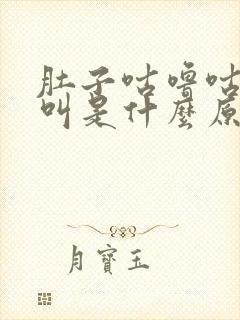 肚子咕噜咕
叫是什麼原
月寶玉